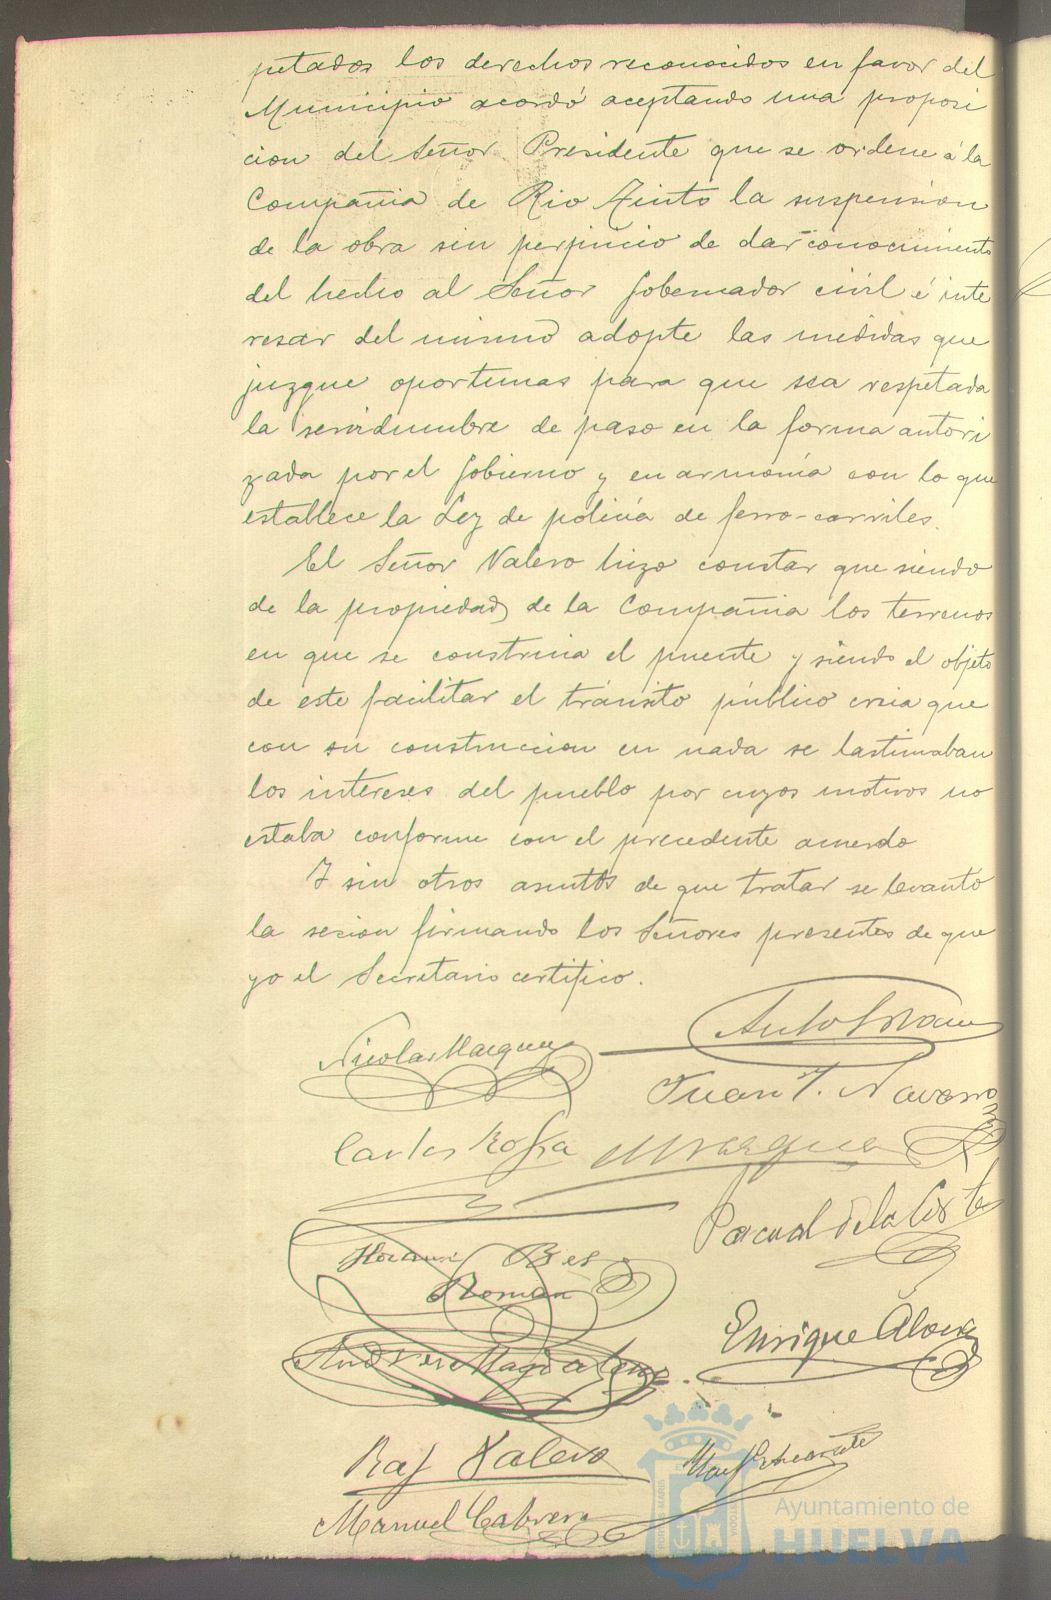 petados los derechos reconocidos en favor del
Municipio acordó aceptando una proposi
cion del Señor Presidente que se ordene á la
Compañia de Rio Tinto la suspension
de la obra sin perjuicio de dar conocimiento
del hecho al Señor Gobernador civil é inte
resar del mismo adopte las medidas que
juzgue oportunas para que sea respetada
la servidumbre de paso en la forma autori
zada por el Gobierno y en armonía con lo que
establece la Ley de policía de ferro-carriles.
El Señor Valero hizo constar que siendo
de la propiedad de la Compañia los terrenos
en que se construia el puente y siendo el objeto
de este facilitar el tránsito público creia que
con su construccion en nada se lastimaban
los intereses del pueblo por cuyos motivos no
estaba conforme con el precedente acuerdo
Y sin otros asuntos de que tratar se levantó
la sesion firmando los Señores presentes de que
yo el Secretario certifico.
Nicolas Marquez
Juan T. Navarro
Carlos
Marquez
Pascual de la Costa
Roman
Enrique
Andres Magdalena
Raf Valero
Manuel Cabrera
Ayuntamiento de
HUELVA